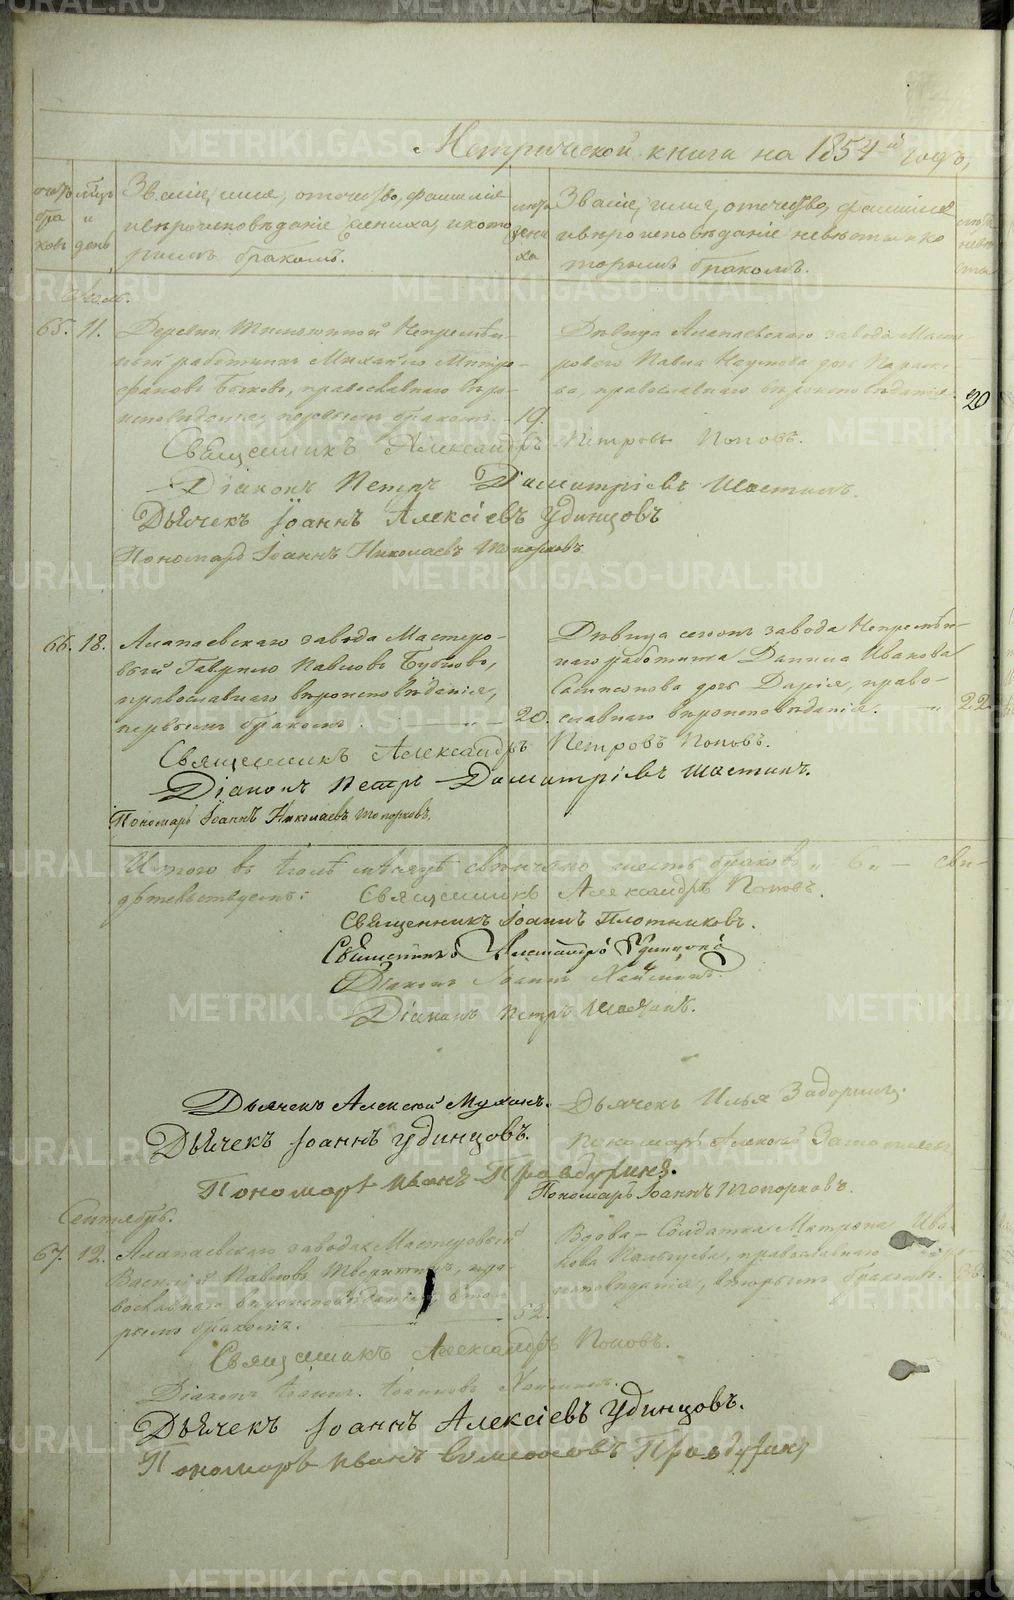 Метрической книги на 1854й годъ,
Званіе, имя, отчество, фамилія
и вѣроисповѣданіе жениха, и кото
рымъ бракомъ.
Званіе, имя, отчество, фамилія
и вѣроисповѣданіе невѣсты и ко
торымъ бракомъ.
Іюль.
65. 11. Деревни
ный работникъ Михайло Митро-
фановъ Быковъ, православнаго вѣро-
исповѣданія, первымъ бракомъ. 19.
Дѣвица Алапаевскаго завода Масте-
роваго Павла Наумова дочь Параске-
ва, православнаго вѣроисповѣданія. 20
Священникъ Александръ Петровъ Поповъ.
Діаконъ Петръ Димитріевъ Шастинъ.
Дьячекъ Іоаннъ Алексіевъ Удинцовъ
Пономарь Іоаннъ Николаевъ Топорковъ
66. 18. Алапаевскаго завода Мастеро-
вый Гаврило Павловъ
православнаго вѣроисповѣданія,
первымъ бракомъ. 20.
Дѣвица сегожъ завода Непремѣн-
наго работника Данила Иванова
дочь Дарія, право-
славнаго вѣроисповѣданія. 22.
Священникъ Александръ Петровъ Поповъ.
Діаконъ Петръ Димитріевъ Шастинъ.
Пономарь Іоаннъ Николаевъ Топорковъ.
Итого въ Іюлѣ мѣсяцѣ свѣнчано шесть браковъ „ 6 „ — сви-
дѣтельствуемъ:
Священникъ Александръ Поповъ.
Священникъ Іоаннъ Плотниковъ.
Священникъ Александръ Удинцовъ
Діаконъ Іоаннъ
Діаконъ Петръ Шастинъ.
Дьячекъ Алексій Мухинъ.
Дьячекъ Илья Задоринъ.
Дьячекъ Іоаннъ Удинцовъ.
Пономарь Алексій
Пономарь Иванъ Правдухинъ.
Пономарь Іоаннъ Топорковъ.
Сентябрь.
67. 12. Алапаевскаго завода Мастеровой
Василій Павловъ пра-
вославнаго вѣроисповѣданія, вто-
рымъ бракомъ. 52.
Вдова — Солдатка Матрена Ива-
нова православнаго вѣро-
исповѣданія, вторымъ бракомъ.
Священникъ Александръ Поповъ.
Діаконъ Іоаннъ Іоанновъ
Дьячекъ Іоаннъ Алексіевъ Удинцовъ.
Пономарь Иванъ Правдухинъ
METRIKI.GASO-URAL.RU